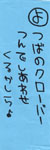 よ
よつばのクローバー
つんでしあわせ
くるかしら